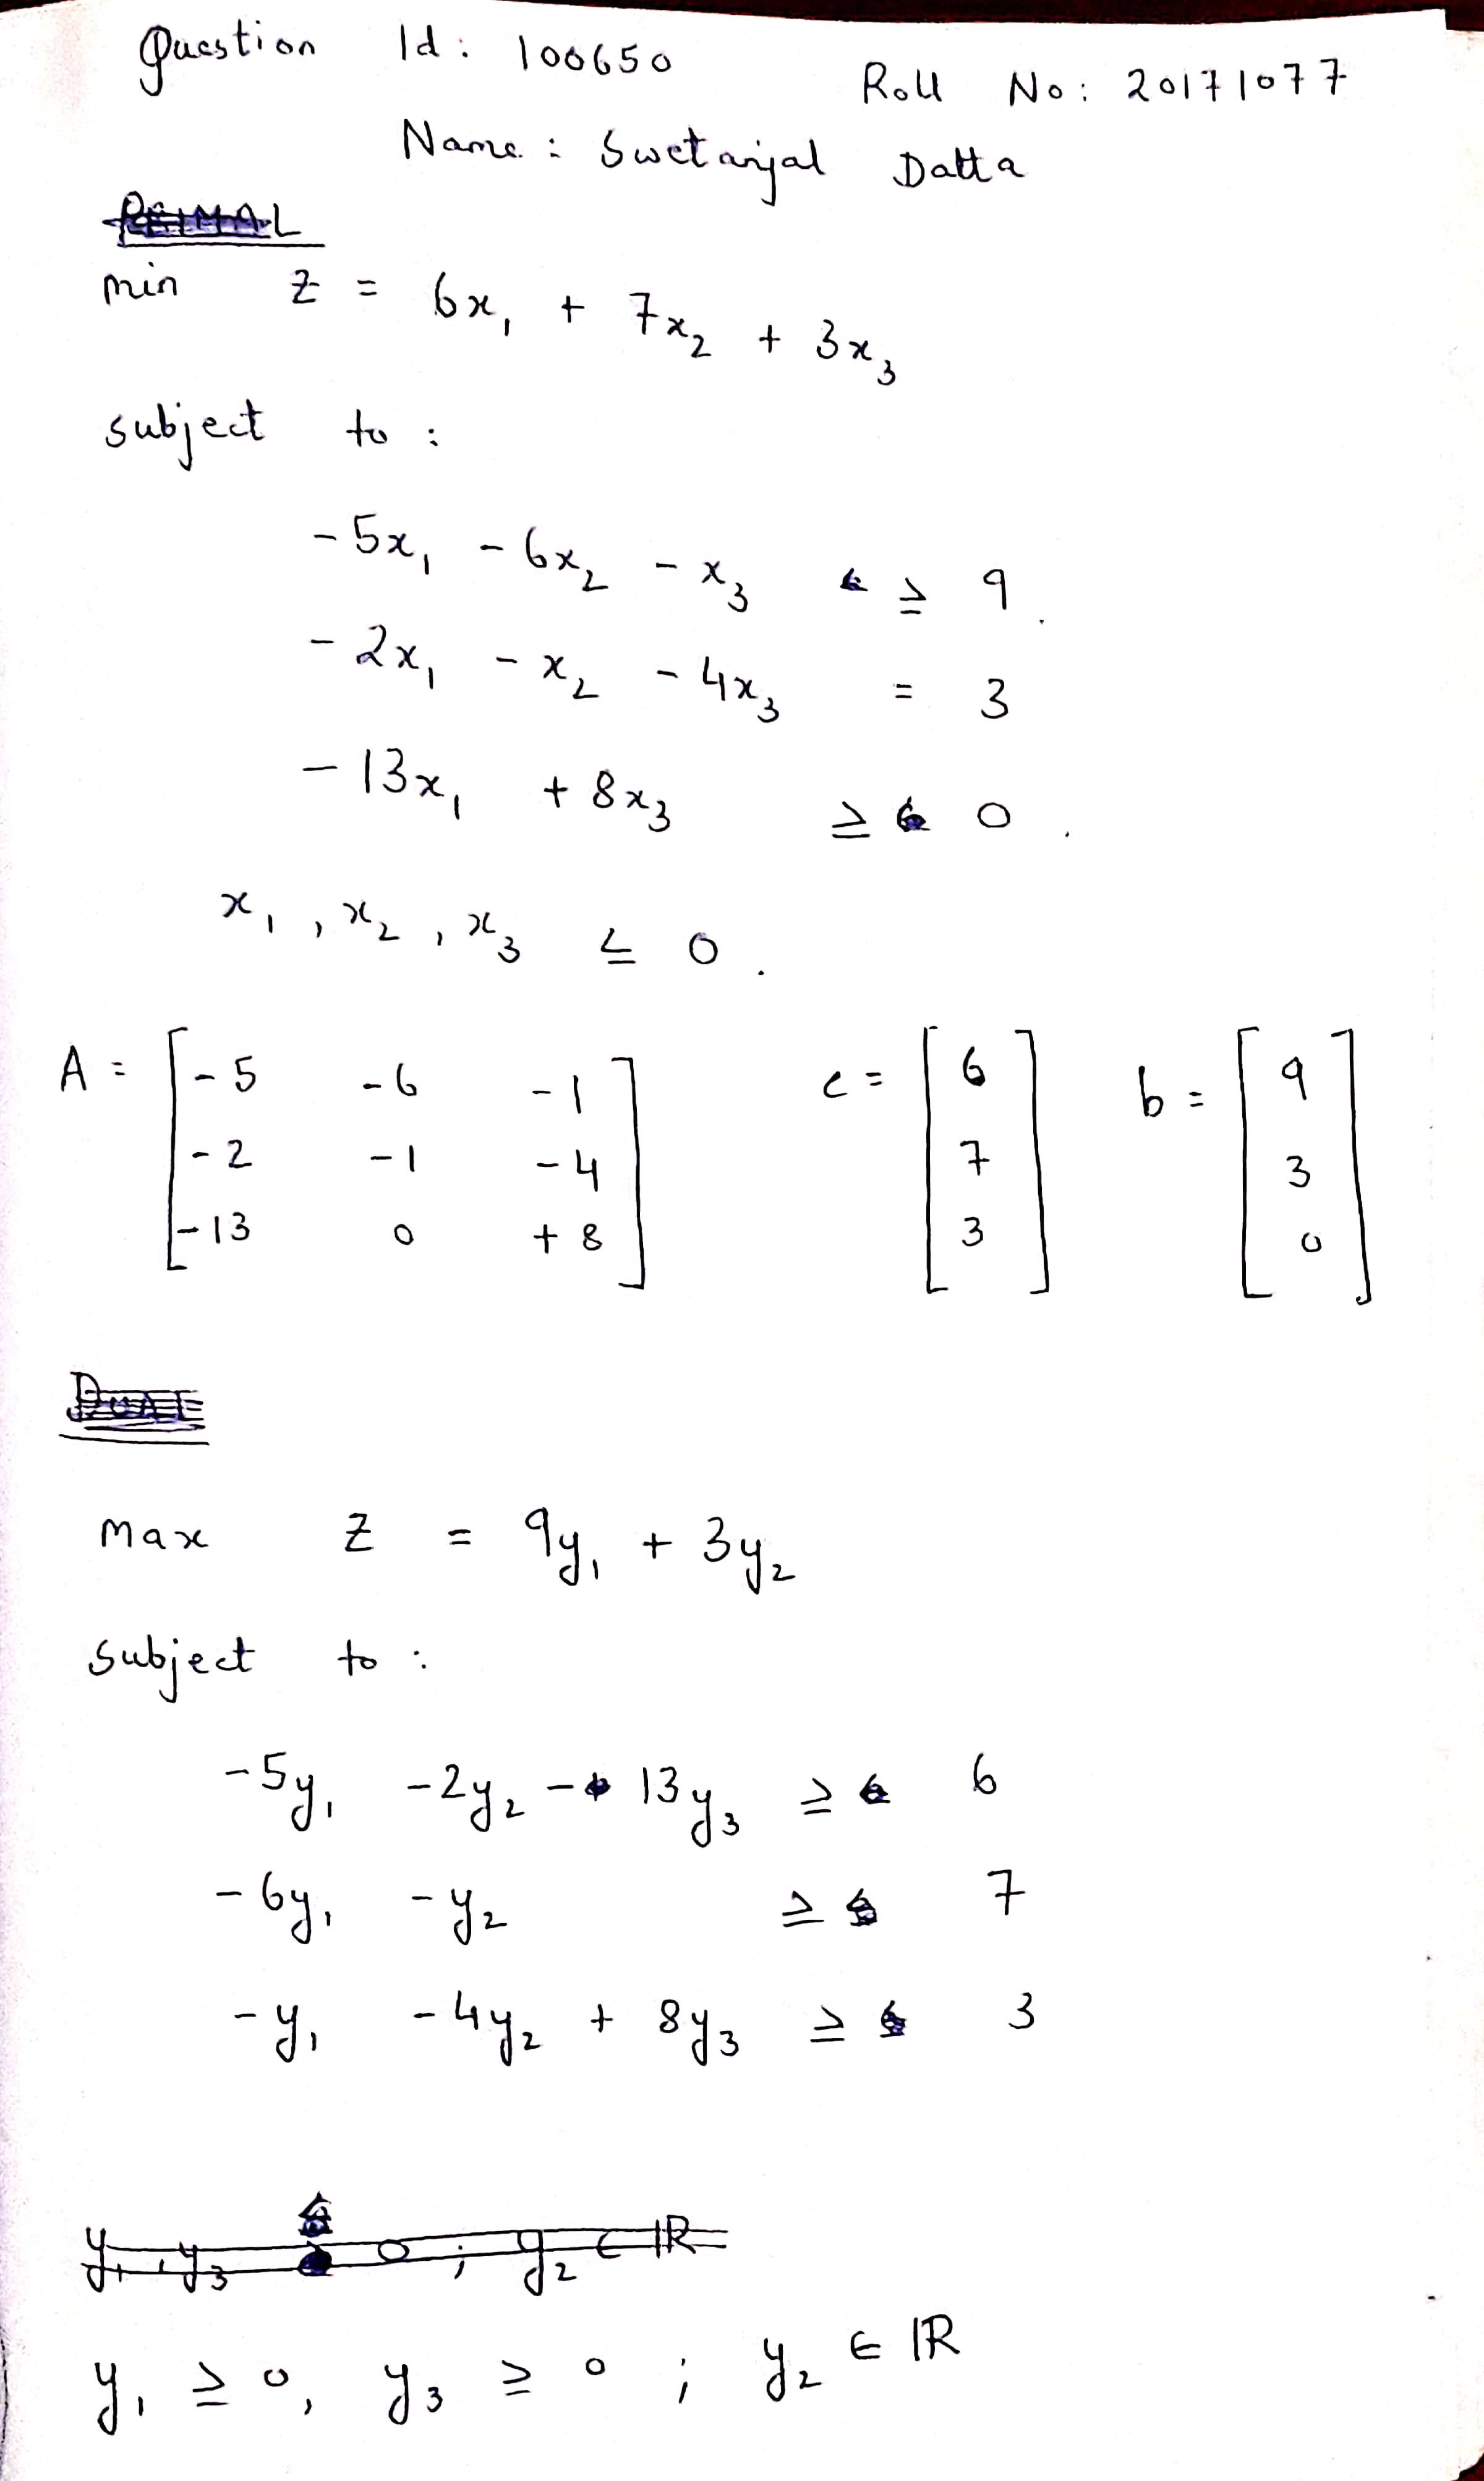 Question Id: 100650
Roll No: 20171077
Name: Swetanjal Datta
min Z = 6x₁ + 7x₂ + 3x₃
subject to:
-5x₁ - 6x₂ - x₃ ≥ 9.
-2x₁ - x₂ - 4x₃ = 3
-13x₁ + 8x₃ ≥ 0.
x₁, x₂, x₃ ≤ 0.
A = [ -5 -6 -1 ] c = [ 6 ] b = [ 9 ]
[ -2 -1 -4 ] [ 7 ] [ 3 ]
[ -13 0 +8 ] [ 3 ] [ 0 ]
Max Z = 9y₁ + 3y₂
subject to:
-5y₁ -2y₂ - 13y₃ ≥ 6
-6y₁ -y₂ ≥ 7
-y₁ -4y₂ + 8y₃ ≥ 3
y₁ ≥ 0, y₃ ≥ 0; y₂ ∈ ℝ